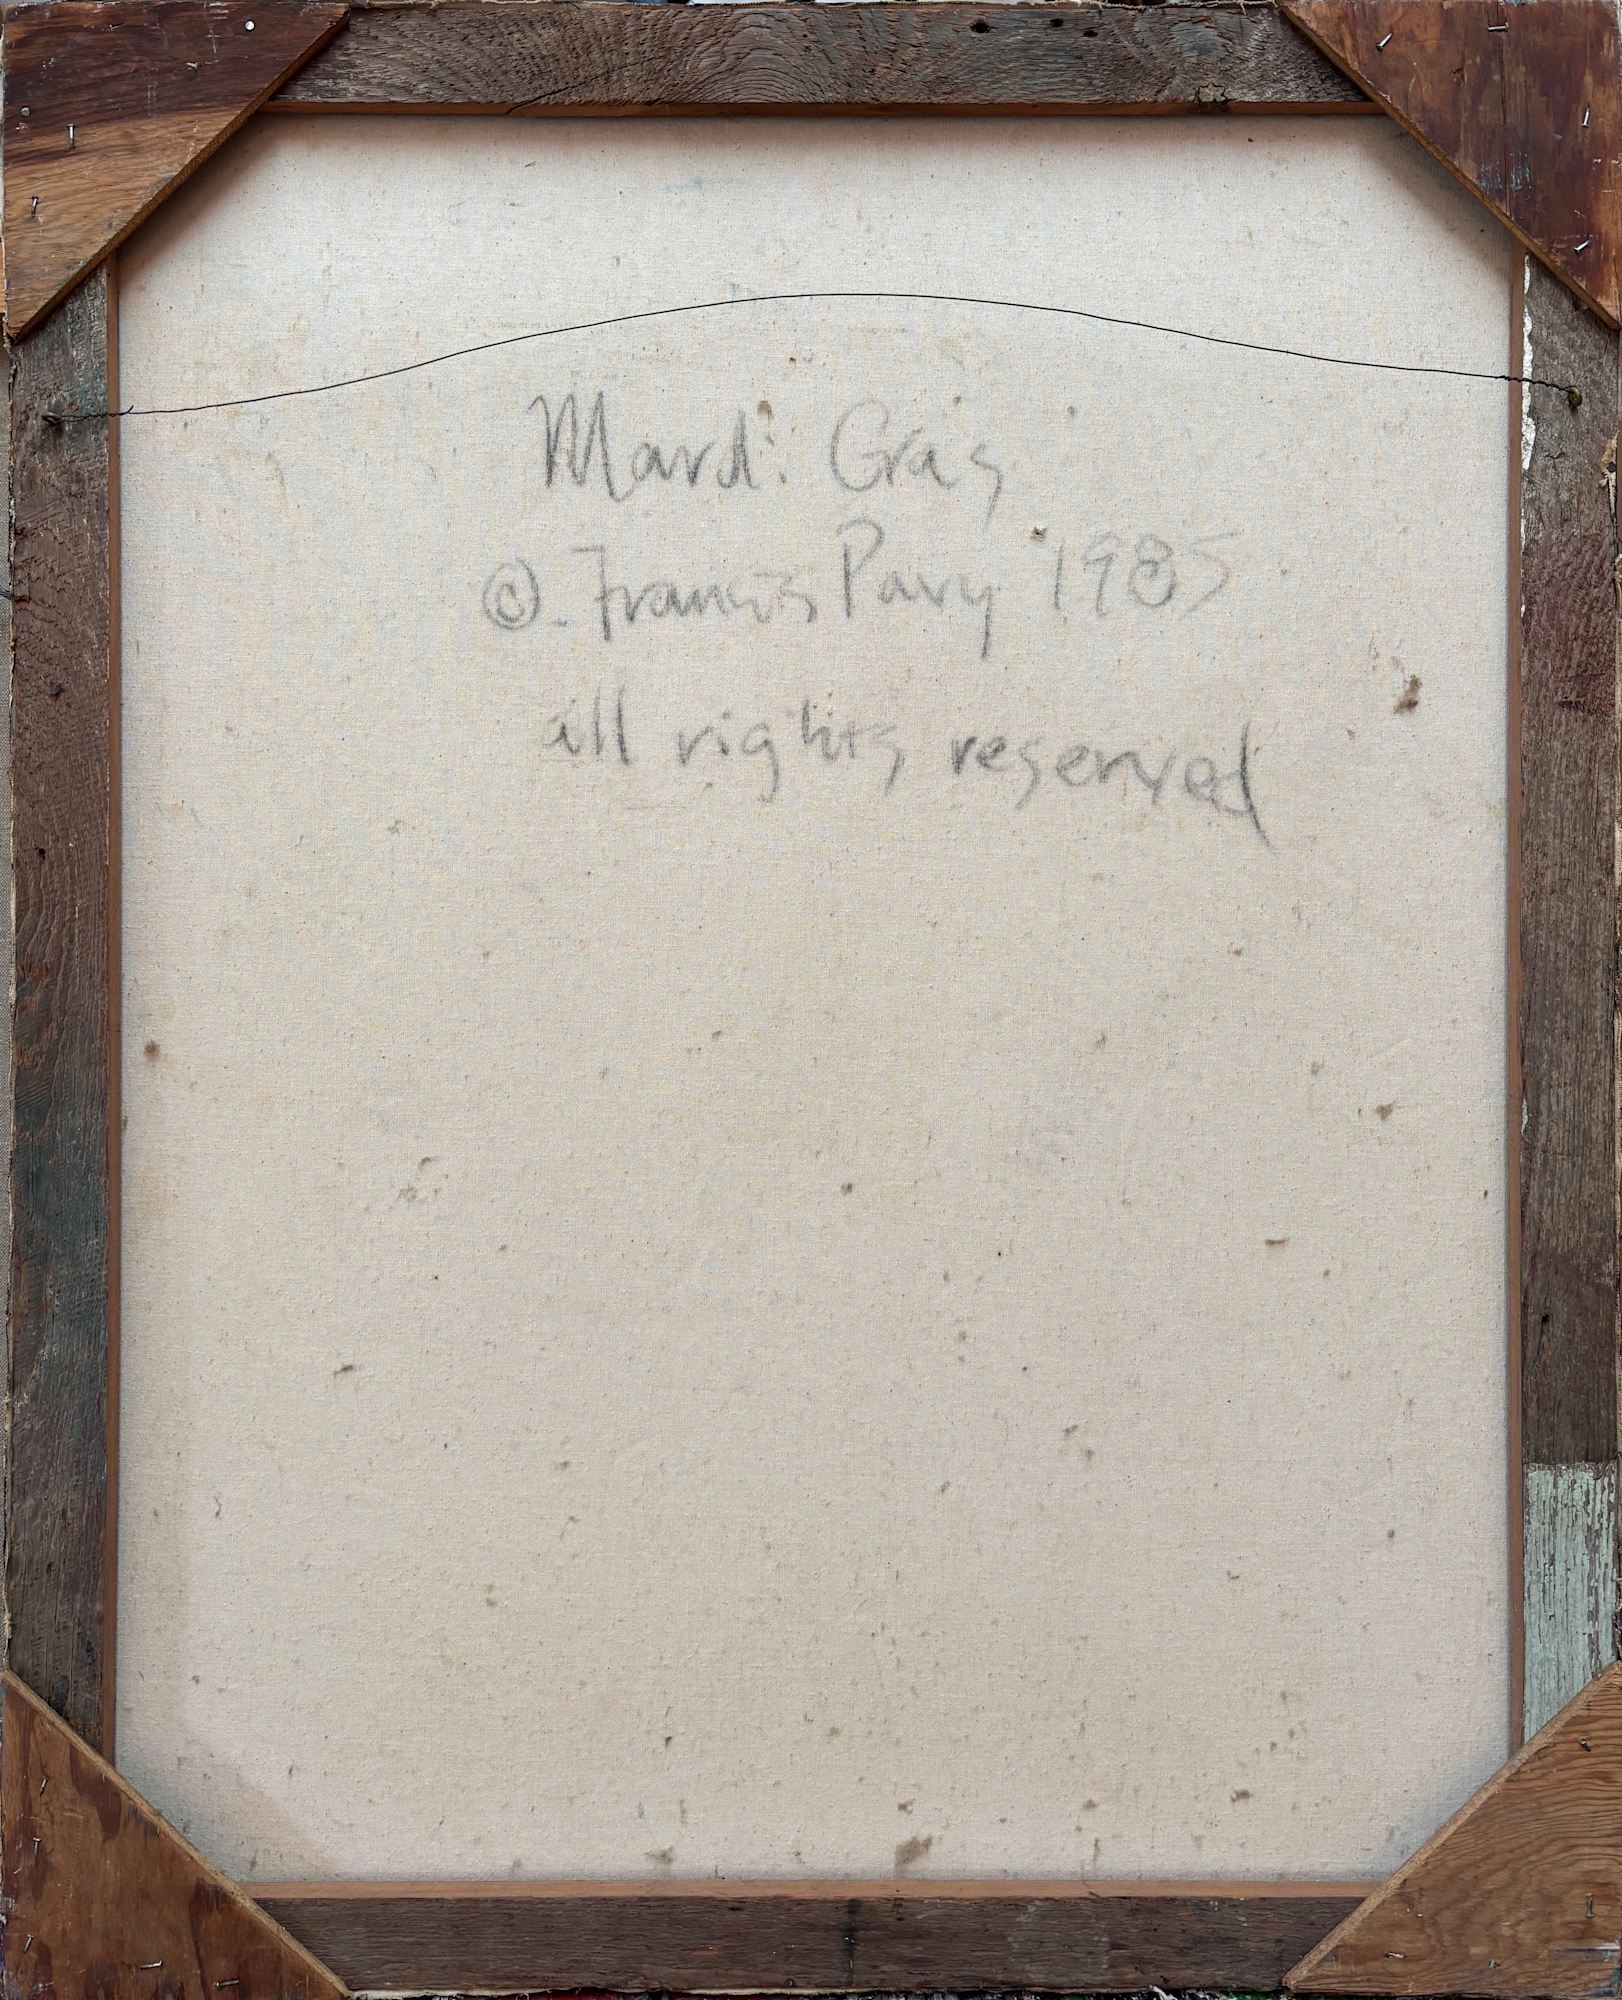 Mardi Gras
© Francis Pavy 1985
all rights reserved